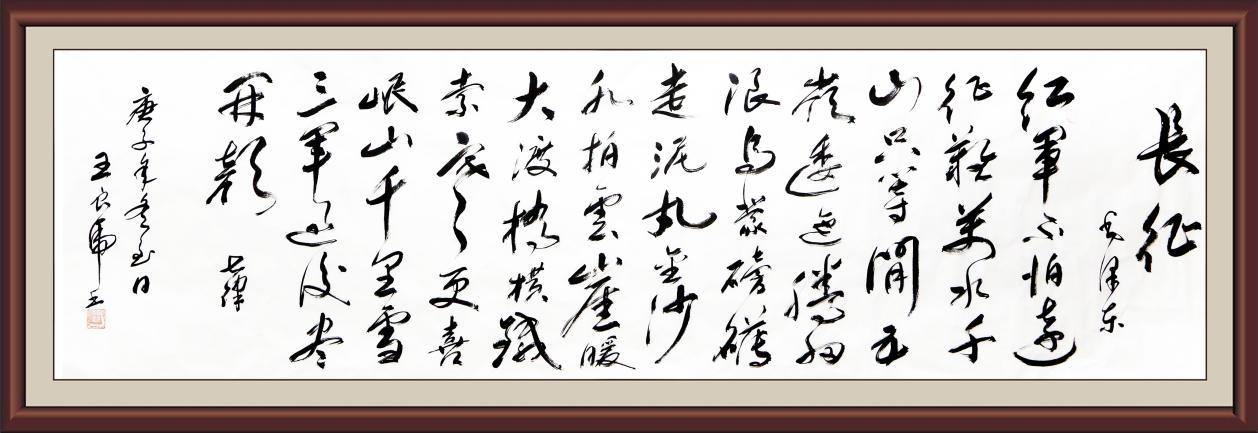 長征
毛泽东
红軍不怕遠
征難萬水千
山只等閒五
嶺逶迤騰細
浪烏蒙磅礴
走泥丸金沙
水拍雲崖暖
大渡橋横鐵
索寒更喜
岷山千里雪
三軍过後尽
開顏 七律
庚子年冬至日
王良虎